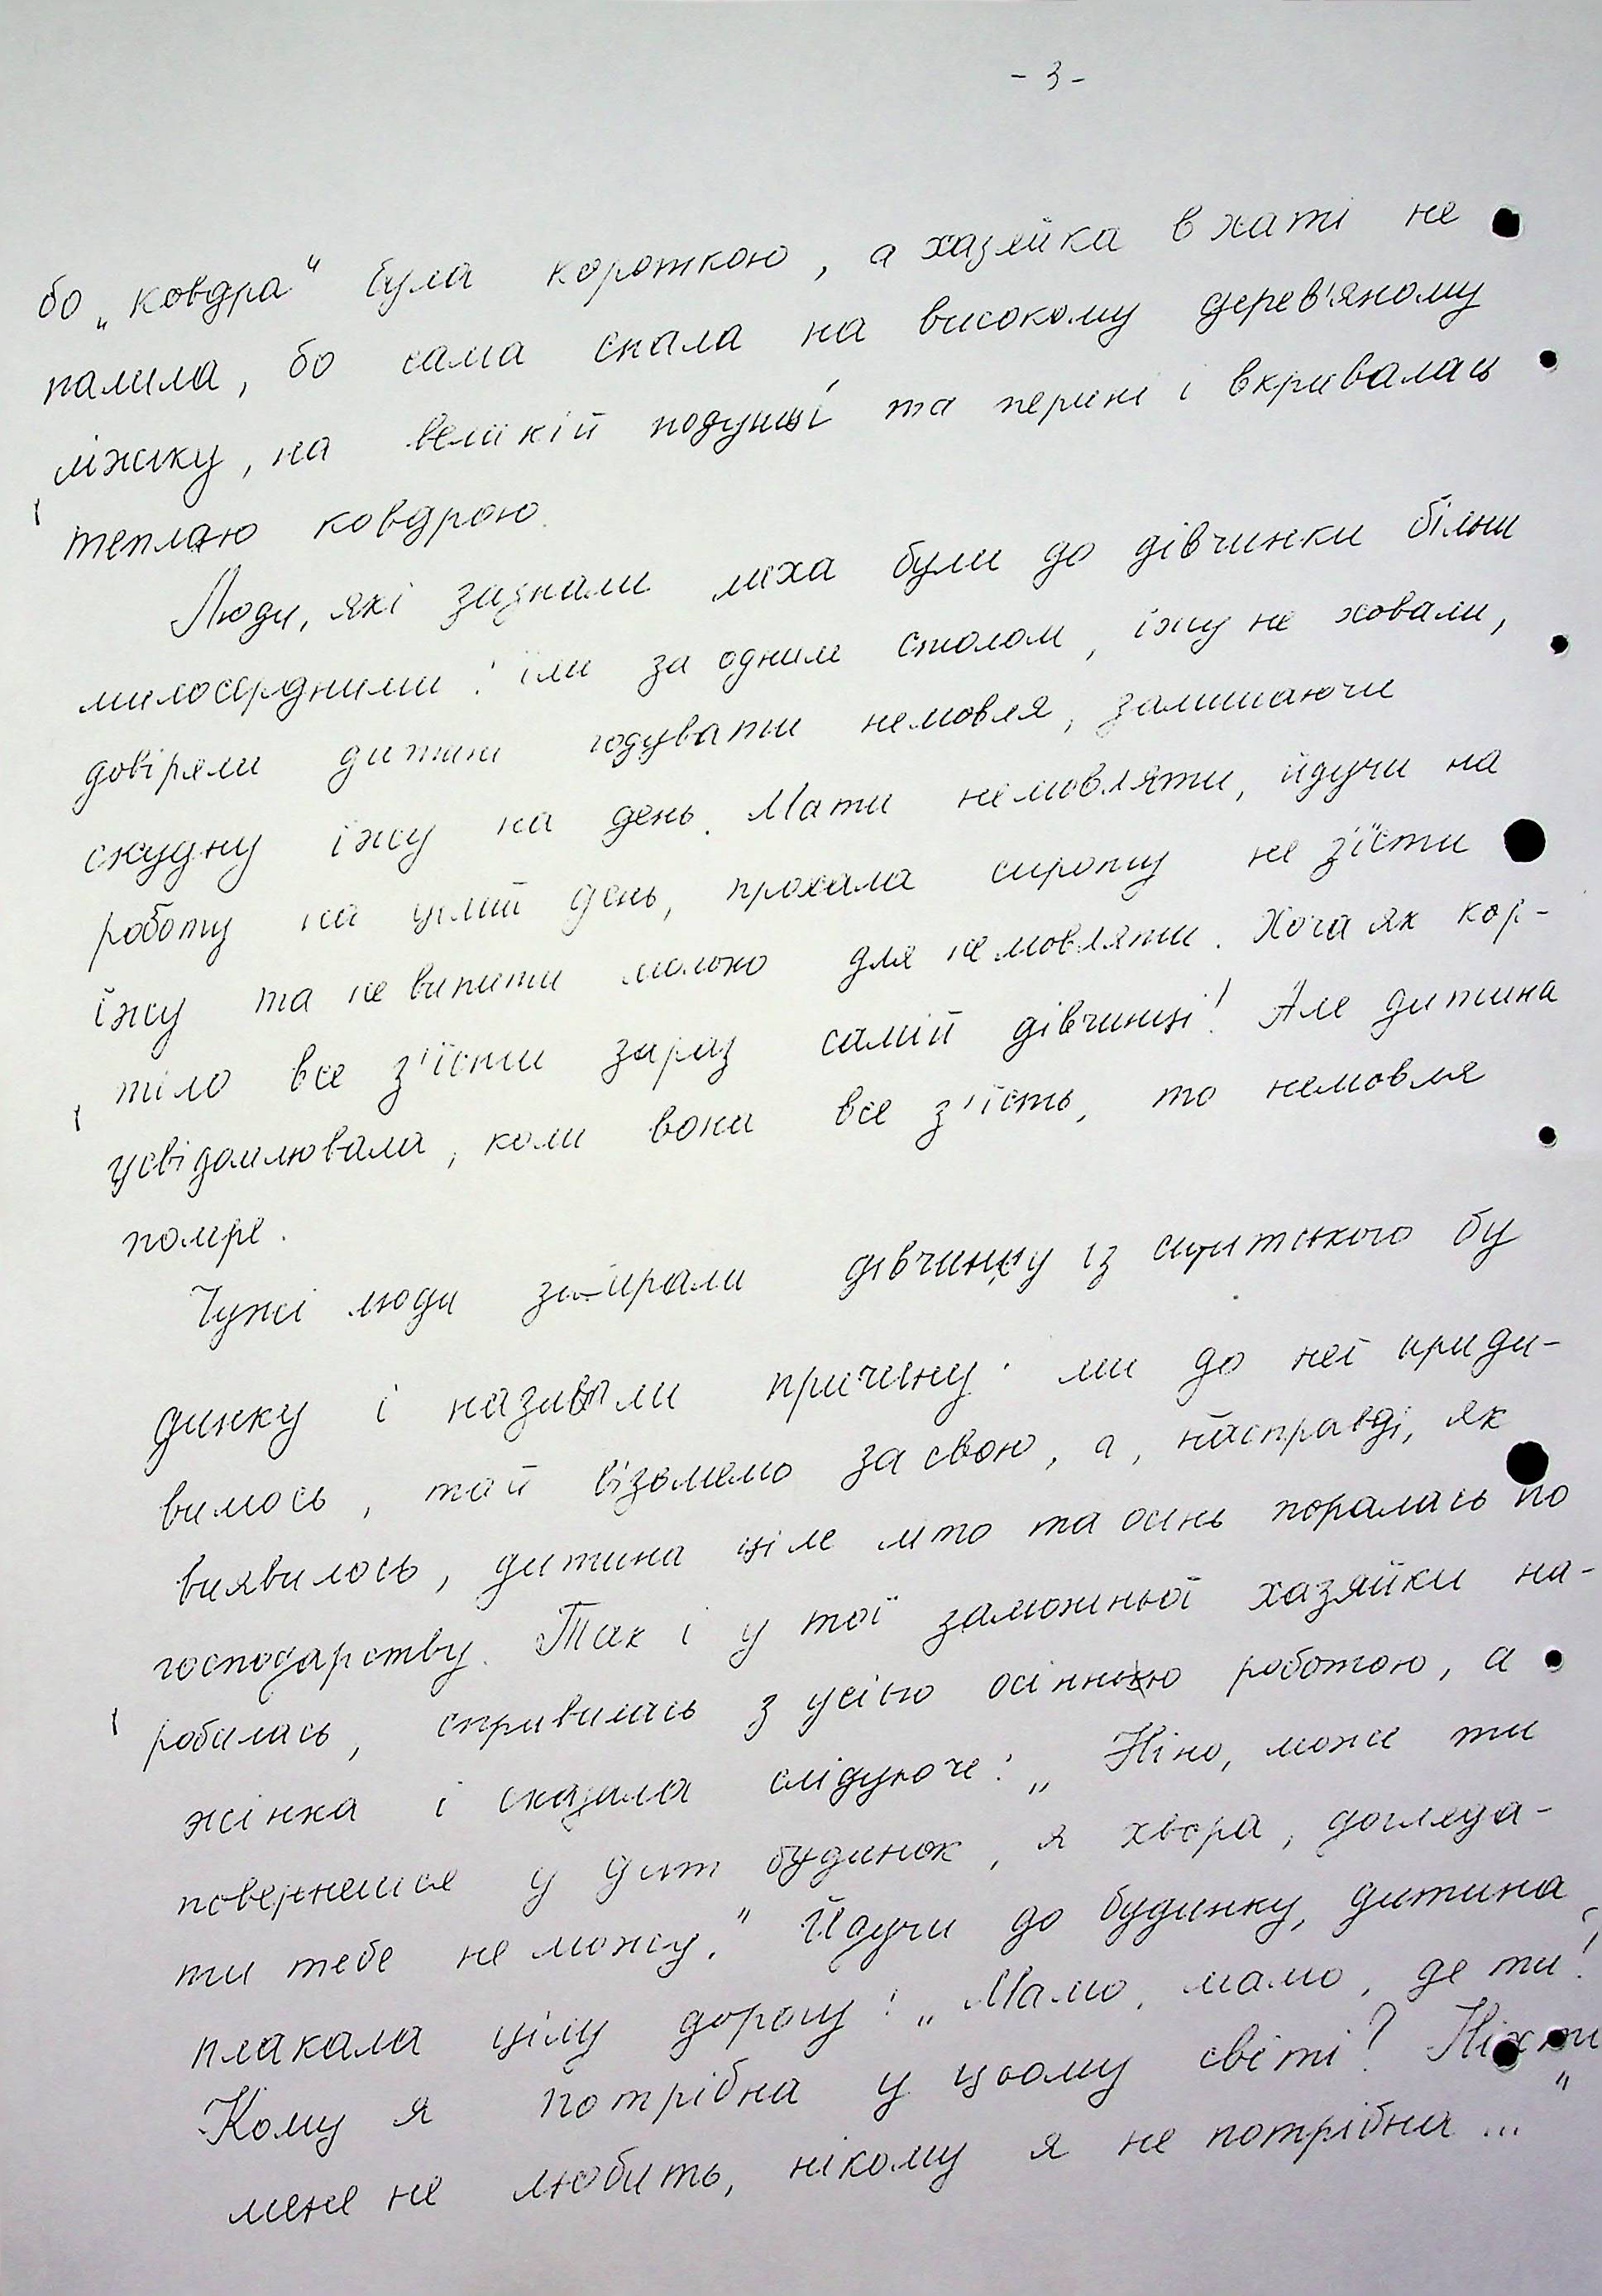 - 3 -
бо „ковдра" була короткою, а хазяйка в хаті не
палила, бо сама спала на високому дерев'яному
ліжку, на великій подушці та перині і вкривалась
теплою ковдрою.
Люди, які зазнали лиха були до дівчинки більш
милосердними: їли за одним столом, їжу не ховали,
довіряли дитині годувати немовля, залишаючи
скудну їжу на день. Мати немовляти, йдучи на
роботу на цілий день, прохала сироту не з'їсти
їжу та не випити молоко для немовляти. Хоча як кор-
тіло все з'їсти зараз самій дівчинці! Але дитина
усвідомлювала, коли вона все з'їсть, то немовля
помре.
Чужі люди забирали дівчинку із сиритського бу
динку і називали причину: ми до неї приди-
вимось, той візьмемо за свою, а, насправді, як
виявилось, дитина ціле літо та осінь поралась по
господарству. Так і у тої заможньої хазяйки на-
робилась, справилась з усією осінньою роботою, а
жінка і сказала слідуюче: „Ніно, може ти
повернешся у дит будинок, я хвора, догляда-
ти тебе не можу." Йдучи до будинку, дитина
плакала цілу дорогу: „Мамо, мамо, де ти!
Кому я потрібна у цьому світі? Ніхто
мене не любить, нікому я не потрібна..."